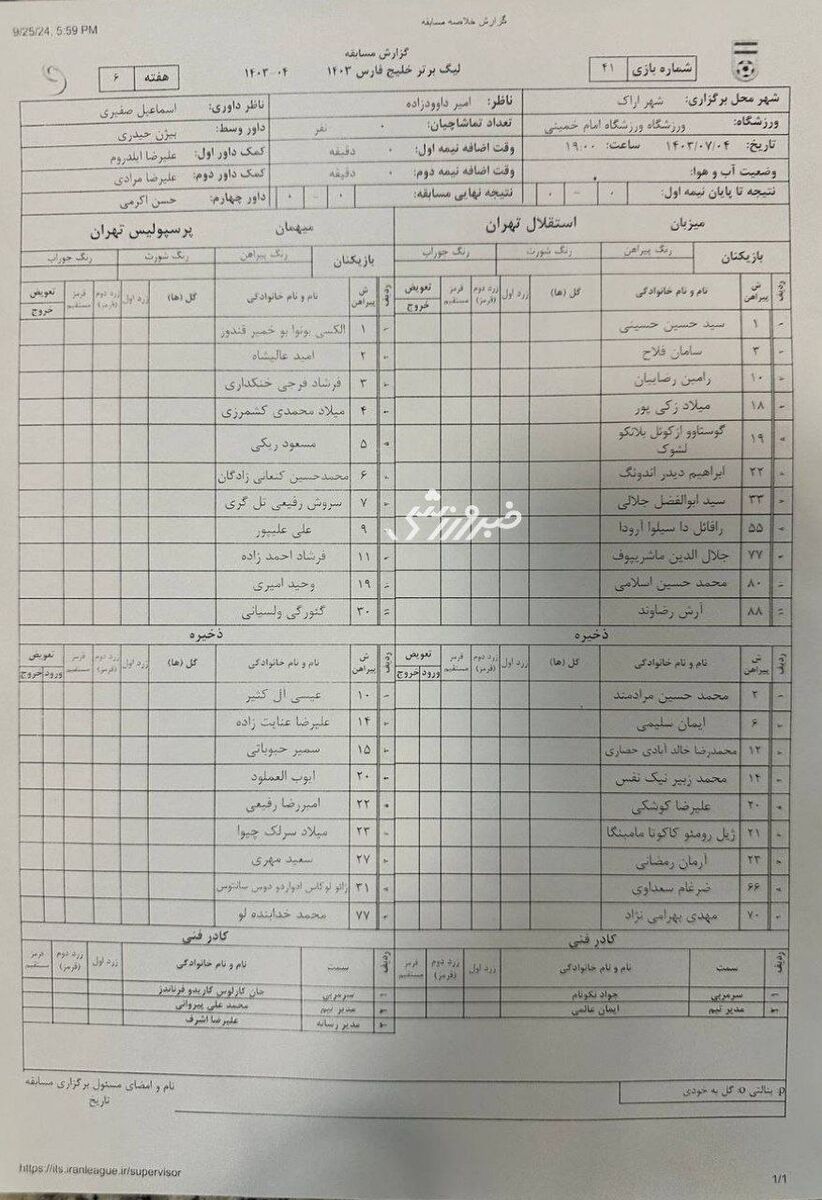 9/25/24, 5:59 PM
گزارش خلاصه مسابقه
گزارش مسابقه
شماره بازی ۴۱
لیگ برتر خلیج فارس ۱۴۰۳ ۰۴-۱۴۰۳
هفته ۶
شهر محل برگزاری: شهر اراک
ناظر: امیر داوودزاده
ناظر داوری: اسماعیل صفیری
ورزشگاه: ورزشگاه ورزشگاه امام خمینی
تعداد تماشاچیان: ۰ نفر
داور وسط: بیژن حیدری
تاریخ: ۱۴۰۳/۰۷/۰۴ ساعت: ۱۹:۰۰
وقت اضافه نیمه اول: ۰ دقیقه
کمک داور اول: علیرضا ایلدروم
وضعیت آب و هوا:
وقت اضافه نیمه دوم: ۰ دقیقه
کمک داور دوم: علیرضا مرادی
نتیجه تا پایان نیمه اول: ۰ - ۰
نتیجه نهایی مسابقه: ۰ - ۰
داور چهارم: حسن اکرمی
میزبان استقلال تهران
بازیکنان رنگ پیراهن رنگ شورت رنگ جوراب
ردیف ش پیراهن نام و نام خانوادگی گل (ها) زرد اول زرد دوم (قرمز) قرمز مستقیم تعویض خروج
۱ سید حسین حسینی
۳ سامان فلاح
۱۰ رامین رضاییان
۱۸ میلاد زکی پور
۱۹ گوستاوو ازکوئل بلانکو
لشوک
۲۲ ابراهیم دیدر اندونگ
۳۳ سید ابوالفضل جلالی
۵۵ رافائل دا سیلوا آرودا
۷۷ جلال الدین ماشریپوف
۸۰ محمد حسین اسلامی
۸۸ آرش رضاوند
ذخیره
ردیف ش پیراهن نام و نام خانوادگی گل (ها) زرد اول زرد دوم (قرمز) قرمز مستقیم تعویض ورود خروج
۲ محمد حسین مرادمند
۶ ایمان سلیمی
۱۲ محمدرضا خالد آبادی حصاری
۱۴ محمد زبیر نیک نفس
۲۰ علیرضا کوشکی
۲۱ ژیل رومئو کاکوتا مامبینگا
۲۳ آرمان رمضانی
۶۶ ضرغام سعداوی
۷۰ مهدی بهرامی نژاد
کادر فنی
ردیف سمت نام و نام خانوادگی زرد اول زرد دوم (قرمز) قرمز مستقیم
۱ سرمربی جواد نکونام
۲ مدیر تیم ایمان عالمی
میهمان پرسپولیس تهران
بازیکنان رنگ پیراهن رنگ شورت رنگ جوراب
ردیف ش پیراهن نام و نام خانوادگی گل (ها) زرد اول زرد دوم (قرمز) قرمز مستقیم تعویض خروج
۱ الکسی بونوا بو خمیر قندور
۲ امید عالیشاه
۳ فرشاد فرجی خنکداری
۴ میلاد محمدی کشمرزی
۵ مسعود ریگی
۶ محمدحسین کنعانی زادگان
۷ سروش رفیعی تل گری
۹ علی علیپور
۱۱ فرشاد احمد زاده
۱۹ وحید امیری
۳۰ گئورگی ولسیانی
ذخیره
ردیف ش پیراهن نام و نام خانوادگی گل (ها) زرد اول زرد دوم (قرمز) قرمز مستقیم تعویض ورود خروج
۱۰ عیسی ال کثیر
۱۴ علیرضا عنایت زاده
۱۵ سمیر حبوباتی
۲۰ ایوب العملود
۲۲ امیررضا رفیعی
۲۳ میلاد سرلک چیوا
۲۷ سعید مهری
۳۱ ژائو لوکاس ادواردو دوس سانتوس
۷۷ محمد خدابنده لو
کادر فنی
ردیف سمت نام و نام خانوادگی زرد اول زرد دوم (قرمز) قرمز مستقیم
۱ سرمربی خان کارلوس گاریدو فرناندز
۲ مدیر تیم محمد علی پیروانی
۳ مدیر رسانه علیرضا اشرف
p: پنالتی o: گل به خودی
نام و امضای مسئول برگزاری مسابقه
تاریخ
خبرورزشی
https://its.iranleague.ir/supervisor
1/1